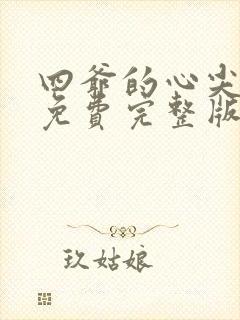 四爷的心尖
免費完整版
玖姑娘